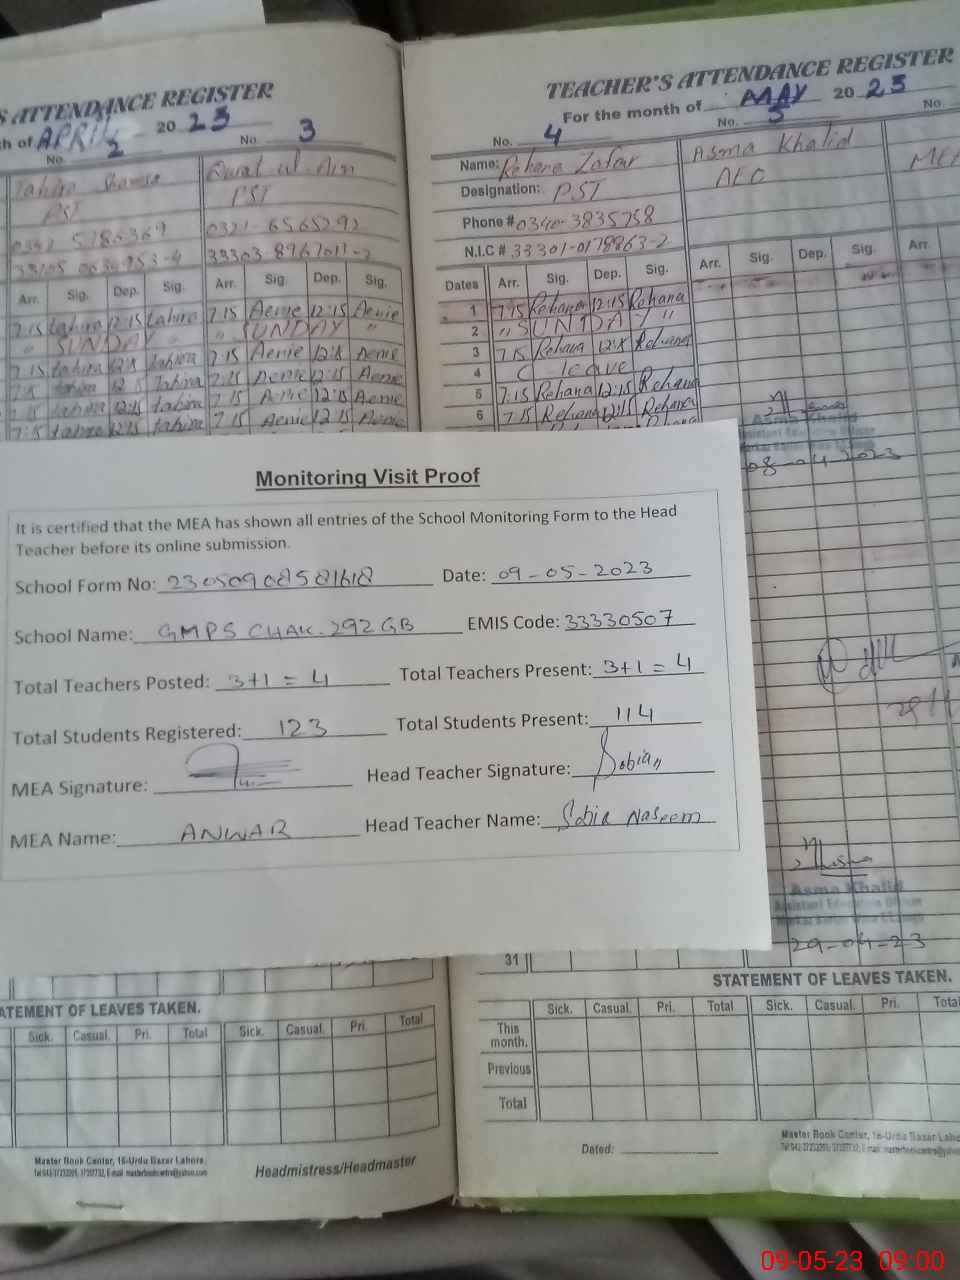 S ATTENDANCE REGISTER
th of APRIL 20 23
No. 2 No. 3
Tahira Qurat-ul-Ain
PST PST
0321-6565292
33303-8967011-2
Arr. Sig. Dep. Sig. Arr. Sig. Dep. Sig.
7:15 tahira 12:15 tahira 7:15 Aenie 12:15 Aenie
" SUNDAY " " SUNDAY "
7:15 tahira tahira 7:15 Aenie Aenie
tahira 12:15 tahira 7:15 Aenie 12:15 Aenie
tahira 12:15 tahira 7:15 Aenie 12:15 Aenie
7:15 tahira 12:15 tahira 7:15 Aenie 12:15 Aenie
TEACHER'S ATTENDANCE REGISTER
For the month of MAY 20 23
No. 4 No. 5 No.
Name: Rehana Zafar Asma Khalid
Designation: PST AEO
Phone # 0340-3835758
N.I.C # 33301-0178863-2
Dates Arr. Sig. Dep. Sig. Arr. Sig. Dep. Sig. Arr.
1 7:15 Rehana 12:15 Rehana
2 " SUNDAY "
3 7:15 Rehana Rehana
4 C leave
5 7:15 Rehana 12:15 Rehana
6 7:15 Rehana 12:15 Rehana
Asma Khalid
08-04-2023
Monitoring Visit Proof
It is certified that the MEA has shown all entries of the School Monitoring Form to the Head
Teacher before its online submission.
School Form No: 23050908581618 Date: 09-05-2023
School Name: GMPS CHAK.292GB EMIS Code: 33330507
Total Teachers Posted: 3+1=4 Total Teachers Present: 3+1=4
Total Students Registered: 123 Total Students Present: 114
MEA Signature: Head Teacher Signature: Sobia
MEA Name: ANWAR Head Teacher Name: Sobia Naseem
Asma Khalid
Assistant Education Officer
29-04-23
31
STATEMENT OF LEAVES TAKEN.
Sick. Casual. Pri. Total Sick. Casual. Pri. Total
This
month.
Previous
Total
Dated:
Master Book Center, 16-Urdu Bazar Laho
ATEMENT OF LEAVES TAKEN.
Sick. Casual. Pri. Total Sick. Casual. Pri. Total
Master Book Center, 16-Urdu Bazar Lahore.
Headmistress/Headmaster
09-05-23 09:00